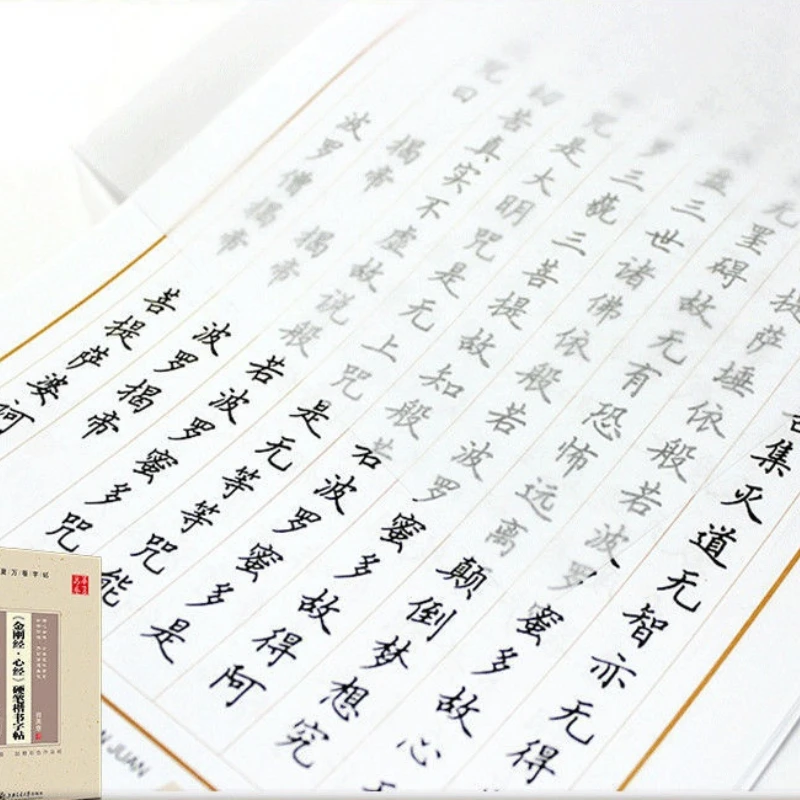 集灭道无智亦无得
提萨埵依般若波罗蜜多故心
罣碍故无有恐怖远离颠倒梦想究
三世诸佛依般若波罗蜜多故得阿
罗三藐三菩提故知般若波罗蜜多是
咒是大明咒是无上咒是无等等咒能
切苦真实不虚故说般若波罗蜜多咒
咒曰揭帝揭帝波罗揭帝
波罗僧揭帝菩提萨婆
JUAN
夏万卷字帖
《金刚经·心经》硬笔楷书字帖